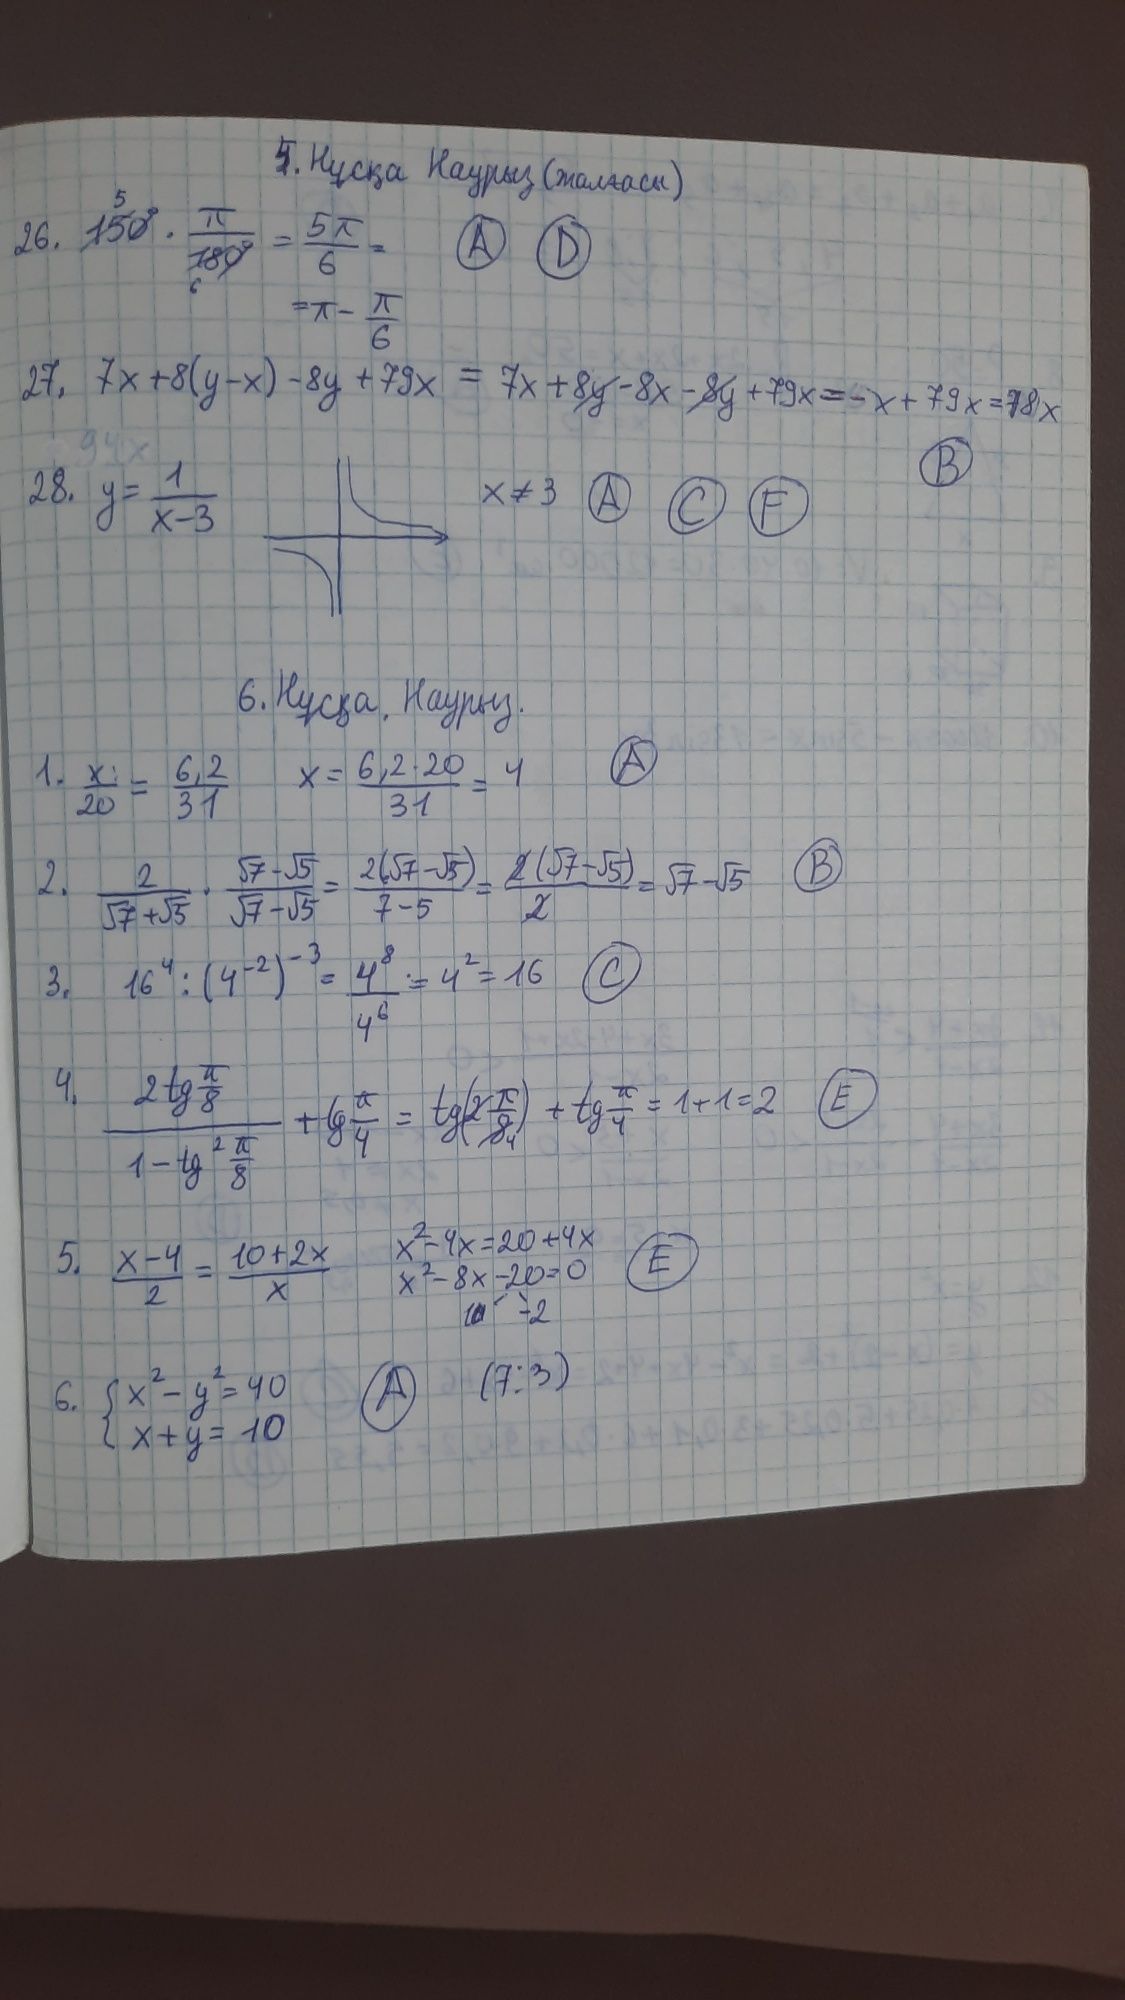 5. Нұсқа Наурыз (жалғасы)
26. 150° · π/180° = 5π/6 = A D
5 6
= π - π/6
27. 7x + 8(y-x) - 8y + 79x = 7x + 8y - 8x - 8y + 79x = -x + 79x = 78x
B
28. y = 1/(x-3) x ≠ 3 A C F
6. Нұсқа. Наурыз.
1. x/20 = 6,2/31 x = 6,2·20/31 = 4 A
2. 2/(√7+√5) · (√7-√5)/(√7-√5) = 2(√7-√5)/(7-5) = 2(√7-√5)/2 = √7-√5 B
3. 16⁴ : (4⁻²)⁻³ = 4⁸/4⁶ = 4² = 16 C
4. 2tg π/8 / (1 - tg² π/8) + tg π/4 = tg(2 π/8 4) + tg π/4 = 1+1=2 E
5. (x-4)/2 = (10+2x)/x x²-4x=20+4x E
x²-8x-20=0
10 -2
6. { x²-y²=40 A (7:3)
x+y=10